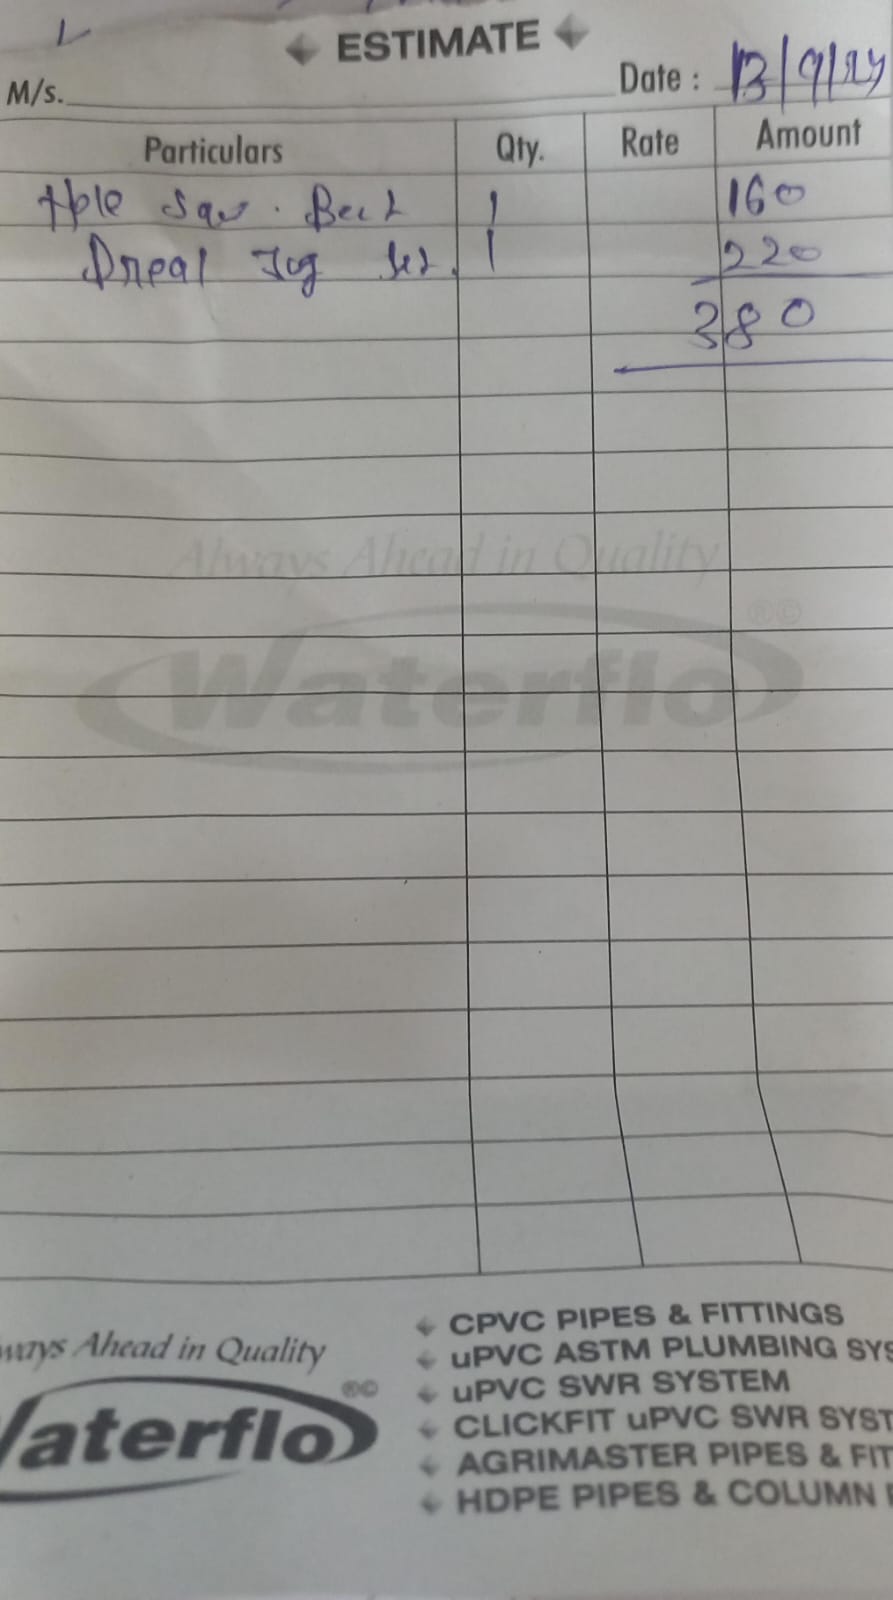 ESTIMATE
M/s.
Date : 13/9/24
Particulars Qty. Rate Amount
Hole Saw. 1 160
1 220
380
Always Ahead in Quality
Waterflo ®©
ways Ahead in Quality
CPVC PIPES & FITTINGS
uPVC ASTM PLUMBING SYS
uPVC SWR SYSTEM
®©
CLICKFIT uPVC SWR SYST
aterflo
AGRIMASTER PIPES & FIT
HDPE PIPES & COLUMN